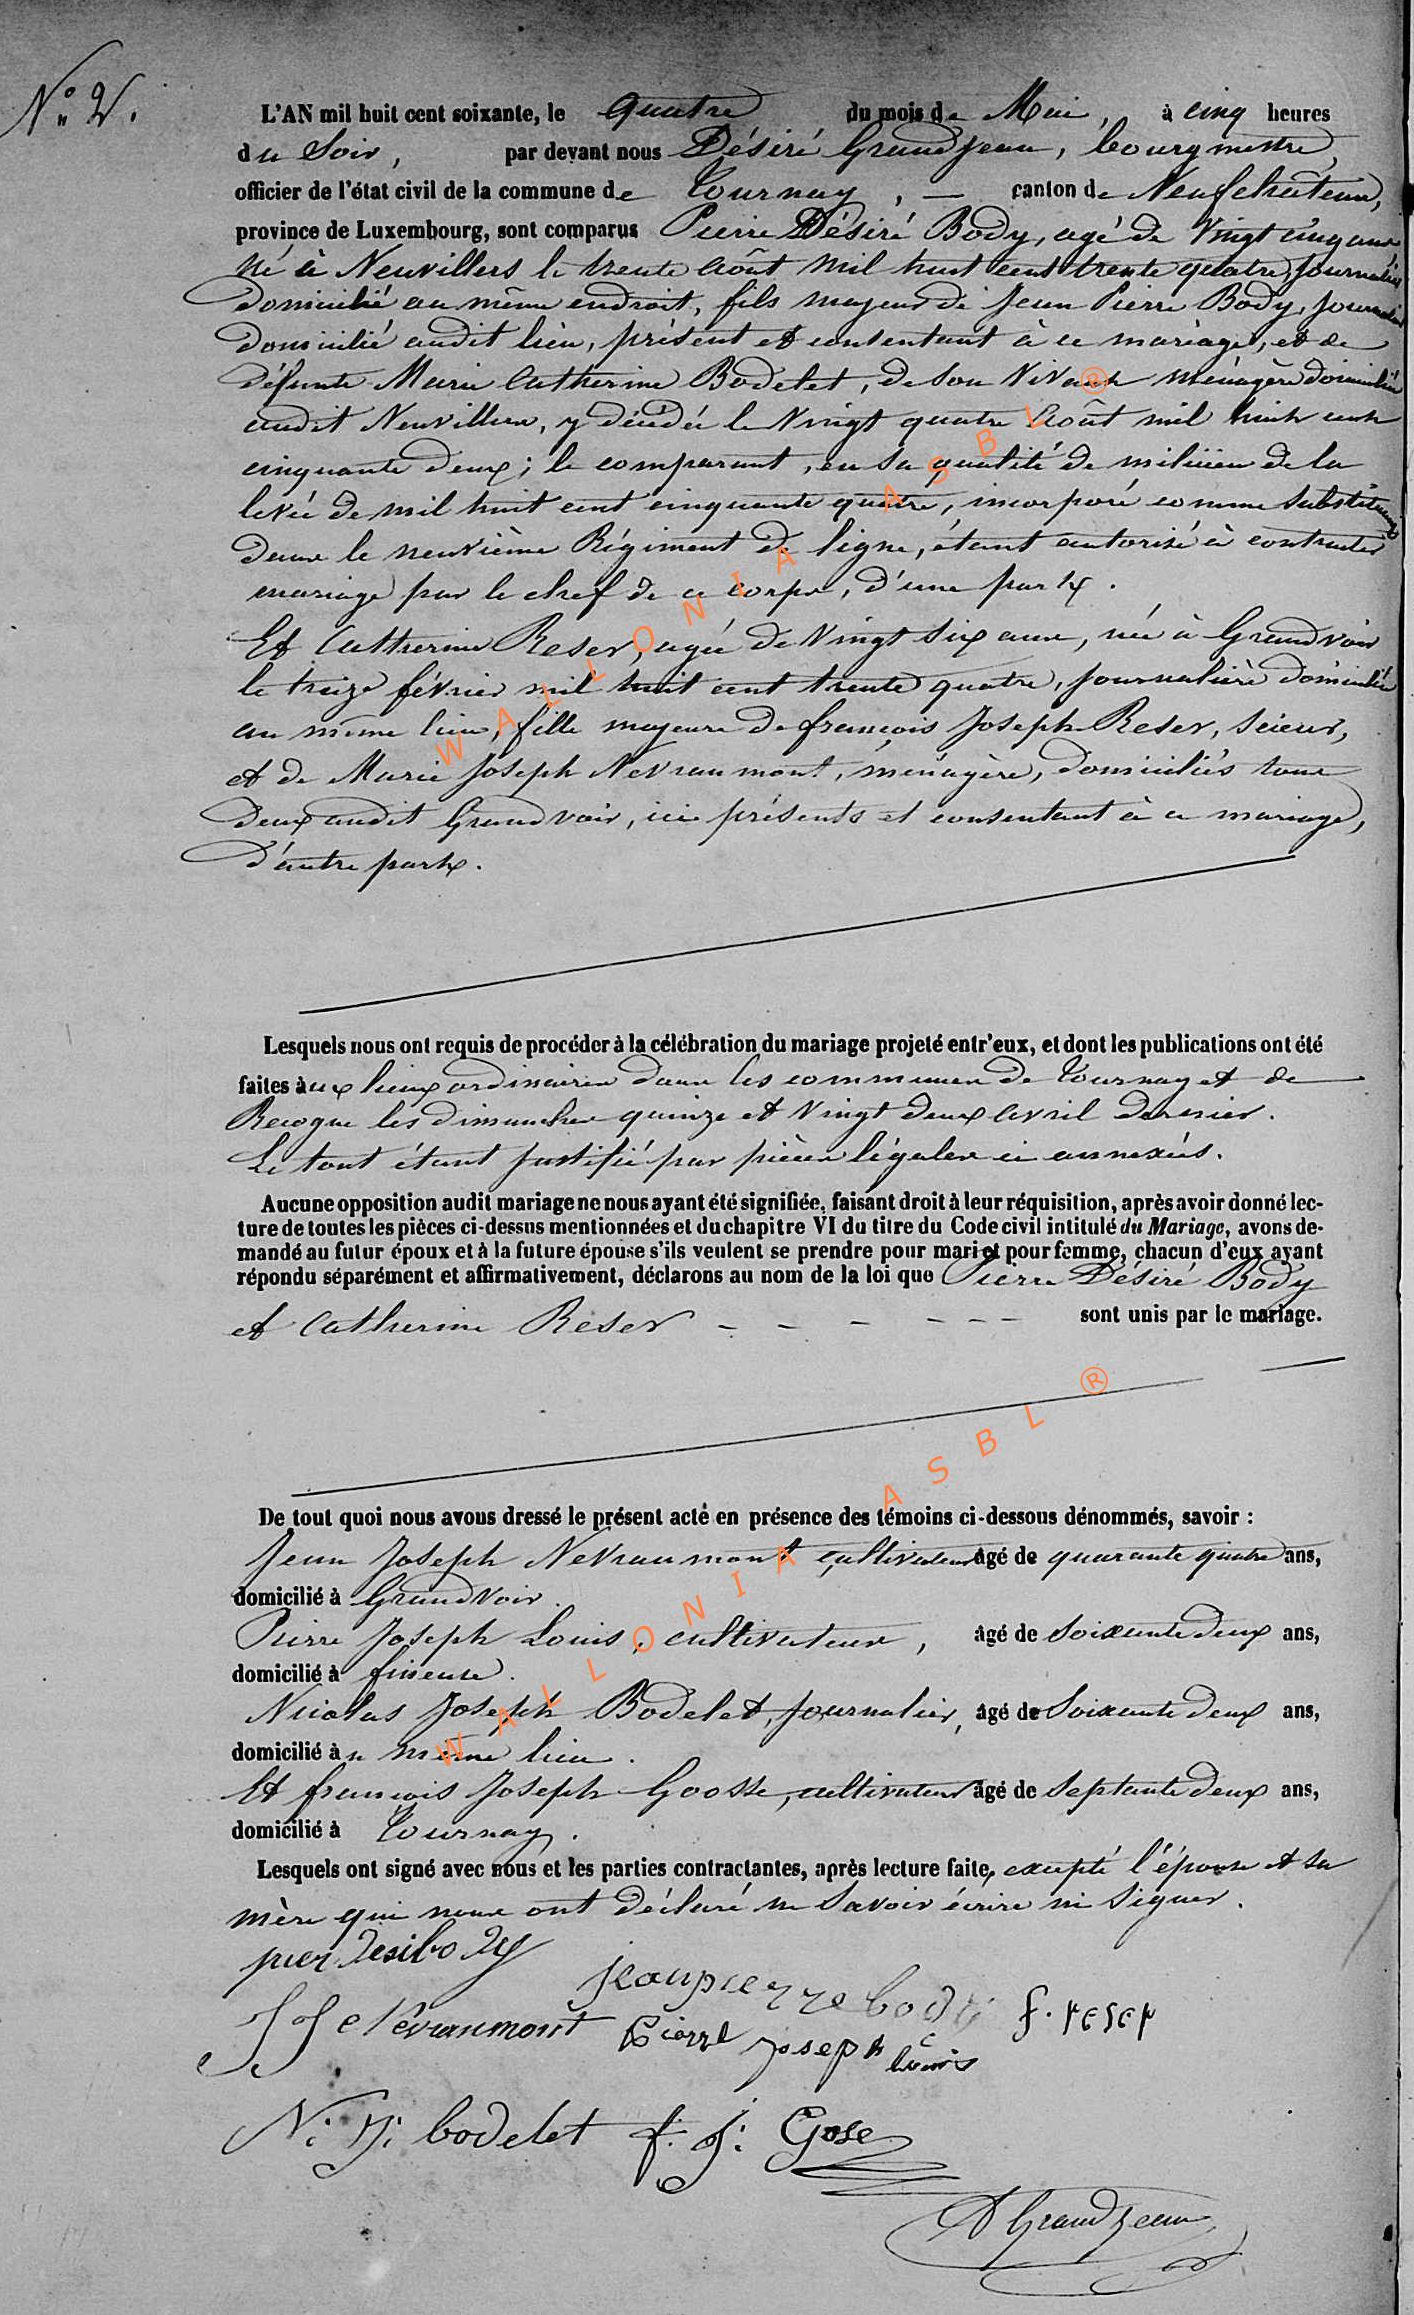 N° 2.
L'AN mil huit cent soixante, le quatre du mois de Mai, à cinq heures
du Soir, par devant nous Désiré Grandjean, bourgmestre,
officier de l'état civil de la commune de Tournay, — canton de Neufchâteau,
province de Luxembourg, sont comparus Pierre Désiré Body, agé de vingt cinq ans
né à Neuvillers le trente août mil huit cent trente quatre, journalier
domicilié au même endroit, fils majeur de Jean Pierre Body, journalier
domicilié audit lieu, présent et consentant à ce mariage, et de
défunte Marie Catherine Bodelet, de son vivant ménagère domiciliée
audit Neuvillers, y décédée le vingt quatre août mil huit cent
cinquante deux; le comparant, en sa qualité de milicien de la
levée de mil huit cent cinquante quatre, incorporé comme substituant
dans le neuvième Régiment de ligne, étant autorisé à contracter
mariage par le chef de ce corps, d'une part.
Et Catherine Reser, agée de vingt six ans, née à Grandvoir
le treize février mil huit cent trente quatre, journalière domiciliée
au même lieu, fille majeure de françois Joseph Reser, scieur,
et de Marie Joseph Nevraumont, ménagère, domiciliés tous
deux audit Grandvoir, ici présents et consentant à ce mariage,
d'autre part.
Lesquels nous ont requis de procéder à la célébration du mariage projeté entr'eux, et dont les publications ont été
faites aux lieux ordinaires dans les communes de Tournay et de
Recogne les dimanches quinze et vingt deux avril dernier.
Le tout étant justifié par pièces légales ci annexées.
Aucune opposition audit mariage ne nous ayant été signifiée, faisant droit à leur réquisition, après avoir donné lec-
ture de toutes les pièces ci-dessus mentionnées et du chapitre VI du titre du Code civil intitulé du Mariage, avons de-
mandé au futur époux et à la future épouse s'ils veulent se prendre pour mari et pour femme, chacun d'eux ayant
répondu séparément et affirmativement, déclarons au nom de la loi que Pierre Désiré Body
et Catherine Reser — — — — — — sont unis par le mariage.
De tout quoi nous avons dressé le présent acte en présence des témoins ci-dessous dénommés, savoir :
Jean Joseph Nevraumont, cultivateur âgé de quarante quatre ans,
domicilié à Grandvoir.
Pierre Joseph Louis, cultivateur, âgé de soixante deux ans,
domicilié à fineuse.
Nicolas Joseph Bodelet, journalier, âgé de soixante deux ans,
domicilié au même lieu.
Et françois Joseph Goosse, cultivateur âgé de septante deux ans,
domicilié à Tournay.
Lesquels ont signé avec nous et les parties contractantes, après lecture faite, excepté l'épouse et sa
mère qui nous ont déclaré ne savoir écrire ni signer.
pier desi body
jeanpierre body f. reser
JJ Nevraumont Pierre joseph louis
N: J: bodelet f. J: Gose
D Grandjean
WALLONIA ASBL ®
WALLONIA ASBL ®